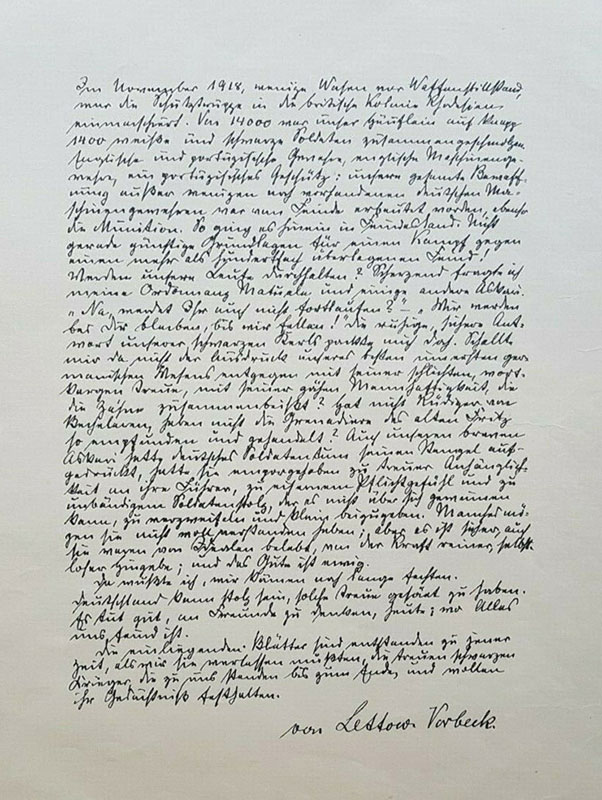 Im November 1918, wenige Wochen vor Waffenstillstand,
war die Schutztruppe in die britische Kolonie Rhodesien
einmarschiert. Von 14000 war unser Häuflein auf knapp
1400 weiße und schwarze Soldaten zusammengeschmolzen.
Englische und portugisische Gewehre, englische Maschinenge-
wehre, ein portugisisches Geschütz: unsere gesamte Bewaff-
nung außer wenigen noch vorhandenen deutschen Ma-
schinengewehren war vom Feinde erbeutet worden, ebenso
die Munition. So ging es hinein in Feindesland. Nicht
gerade günstige Grundlagen für einen Kampf gegen
einen mehr als hundertfach überlegenen Feind!
Werden unsere Leute durchhalten? Scherzend fragte ich
meine Ordonnanz und einige andere Askari.
„Na, werdet Ihr auch nicht fortlaufen?" – „Wir werden
bei Dir bleiben, bis wir fallen!" Die ruhige, sichere Ant-
wort unserer schwarzen Kerls packte mich doch. Schallte
mir da nicht der Ausdruck unseres besten ureigensten ger-
manischen Wesens entgegen mit seiner schlichten, wort-
kargen Treue, mit seiner zähen Mannhaftigkeit, die
die Zähne zusammenbeißt? Hat nicht Rüdiger von
Bechelaren, haben nicht die Grenadiere des alten Fritz
so empfunden und gehandelt? Auch unseren braven
Askari hatte deutsches Soldatentum seinen Stempel auf-
gedrückt, hatte sie emporgehoben zu treuer Anhänglich-
keit an ihre Führer, zu eisernem Pflichtgefühl und zu
unbändigem Soldatenstolz, der es nicht über sich gewinnen
kann, zu verzweifeln und klein beizugeben. Manches mö-
gen sie nicht voll verstanden haben; aber es ist sicher, auch
sie waren von Idealen belebt, von der Kraft reiner, selbst-
loser Hingabe; und das Gute ist ewig.
Da wußte ich, wir können noch lange fechten.
Deutschland kann stolz sein, solche Treue gehabt zu haben.
Es tut gut, an Freunde zu denken, heute, wo Alles
uns feind ist.
Die einliegenden Blätter sind entstanden zu jener
Zeit, als wir sie verlassen mußten, die treuen schwarzen
Krieger, die zu uns standen bis zum Ende, und wollen
ihr Gedächtniß festhalten.
von Lettow-Vorbeck.